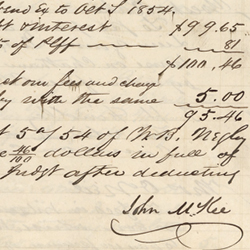 and Ex to Oct 5, 1854
ft interest $99.65
ts of Plff — 81
$100.46
ct our fees and charge
ly with the same 5.00
95.46
t 5, 54 of W. B. Negley
46/100 dollars in full of
Judgt after deducting
John McKee